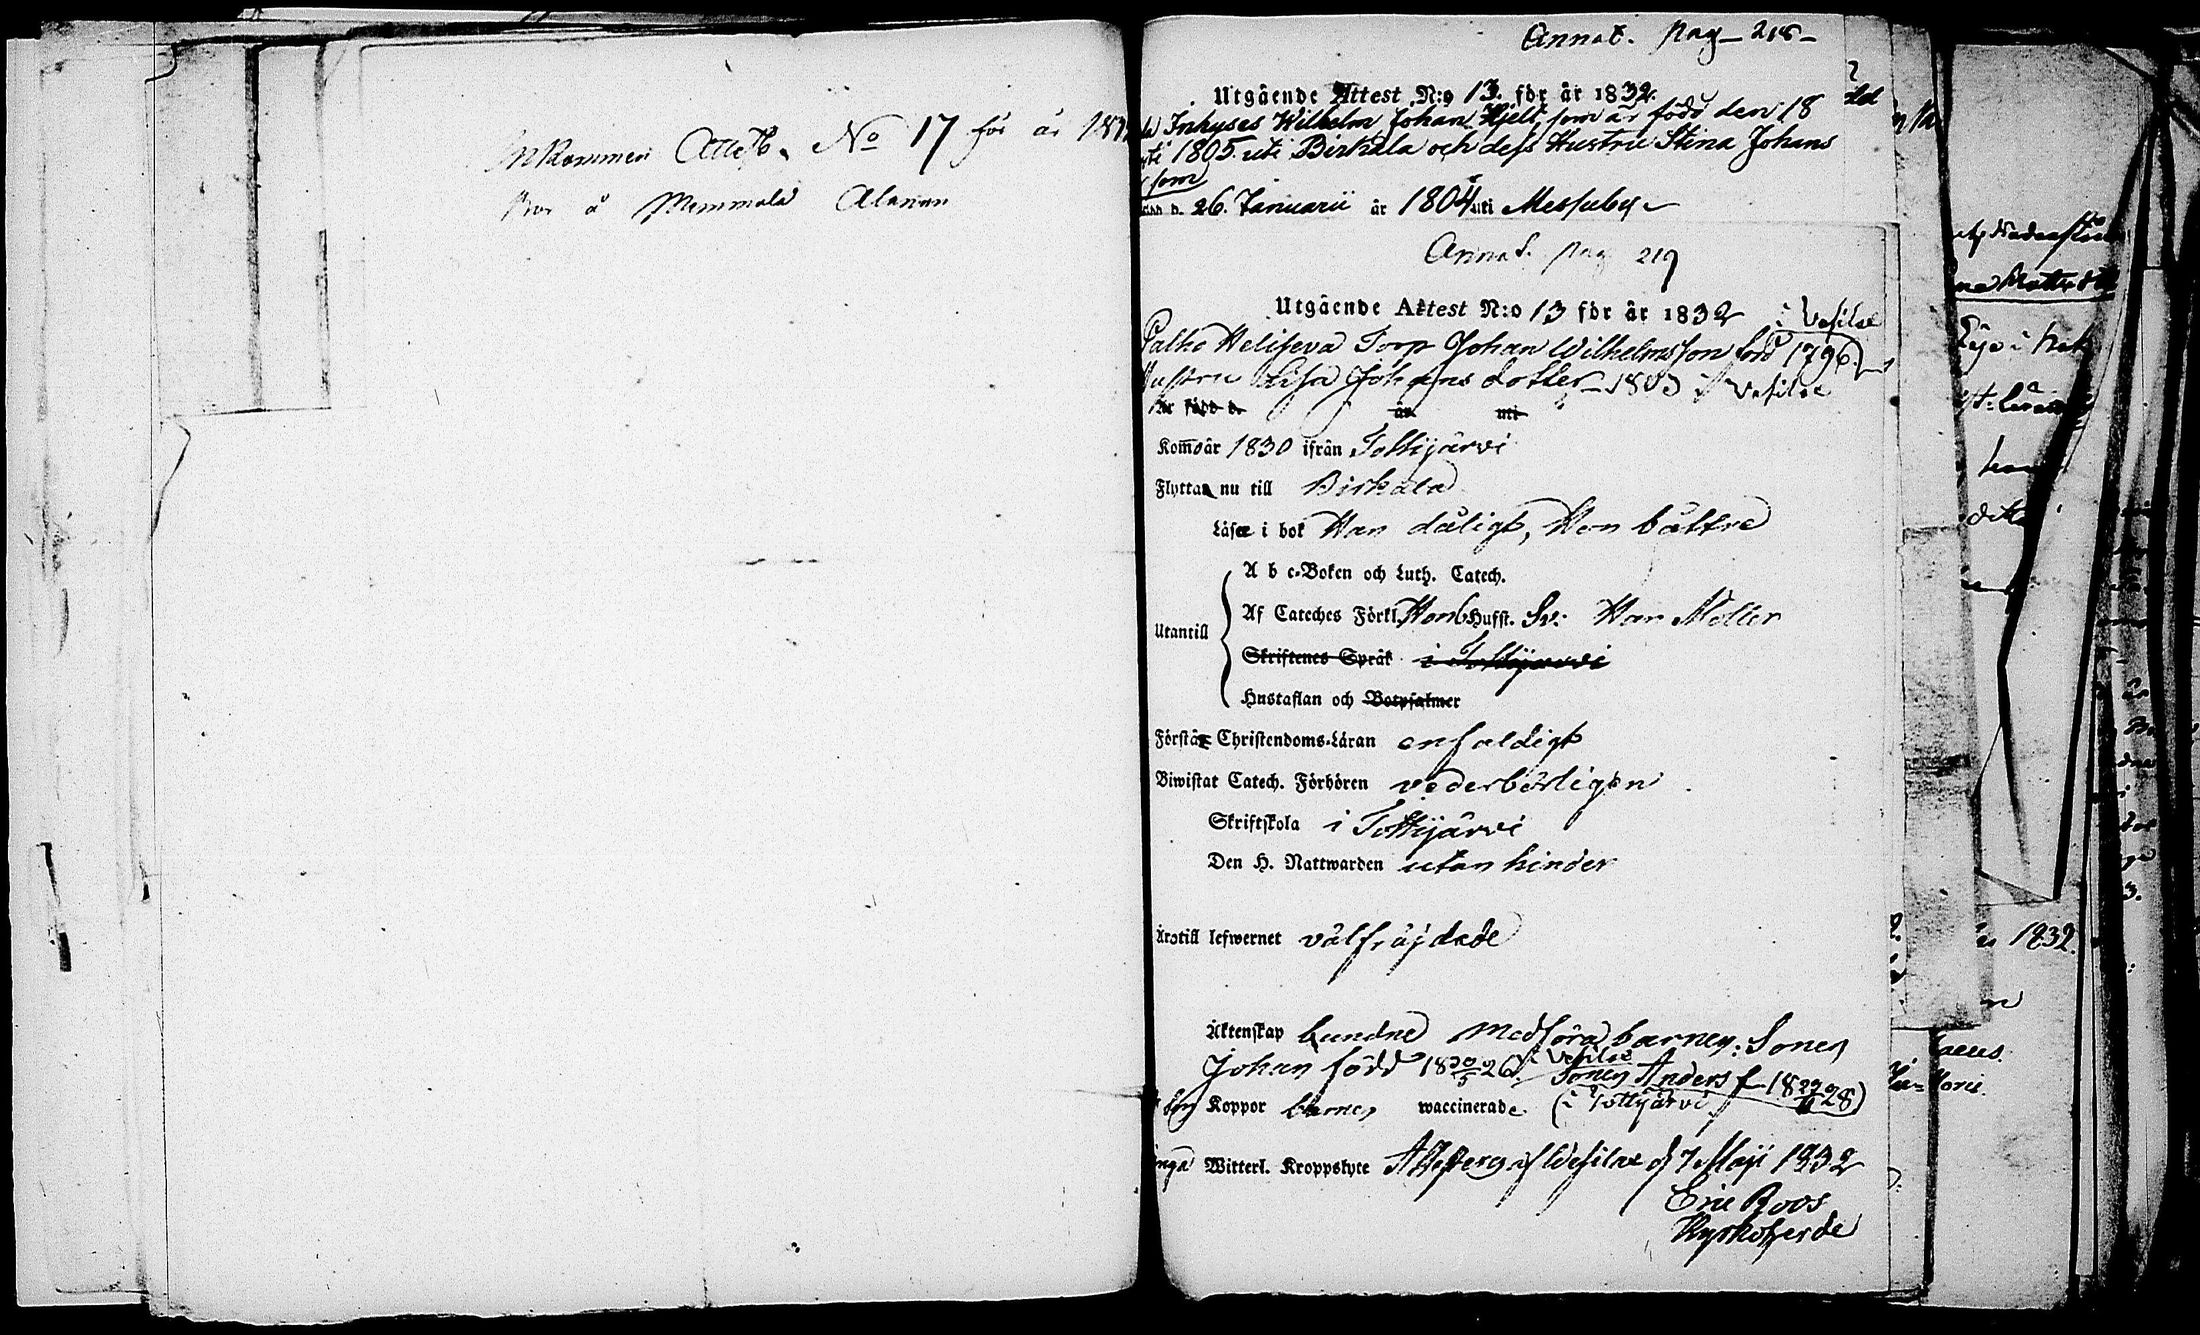 Inkommen Attest. No 17 för år
Bor å Memmala Alanen
Annot. Pag- 218-
Utgående Attest N:o 13. för år 1832.
Inhyses Wilhelm Johan Hjelt, som är född den 18
1805 uti Birkala och dess Hustru Stina Johans
som
född d. 26. Januarii år 1804 uti Messuby
Annot. pag 219
Utgående Attest N:o 13 för år 1832
i Vesilax
Palho Torp Johan Wilhelmsson född 1796
Hustru Lisa Johans dotter 1803 i Vesilax
är född d. år uti
Kom̄o år 1830 ifrån Tottijärvi
Flyttar nu till Birkala
Läser i bok Han dåligt, Hon bättre
A b c-Boken och Luth. Catech.
Af Cateches Förkl. Hon Husst. Sv: Han
Utantill
Skriftenes Språk i Tottijärvi
Hustaflan och Botpsalmer
Förstår Christendoms-Läran enfaldigt
Biwistat Catech. Förhören vederbörligen
Skriftskola i Tottijärvi
Den H. Nattwarden utan hinder
Äro till lefwernet välfräjdade
Äktenskap bundne Medföra barnen: Sonen
Johan född 18 30/5 26 i Vesilax Sonen Anders f 18 29/11 28
Koppor barnen waccinerade (i Tottijärvi)
inga Witterl. Kroppslyte Attesteras af Wesilax d 7 Maji 1832
Eric Roos
Kyrkoherde
1832